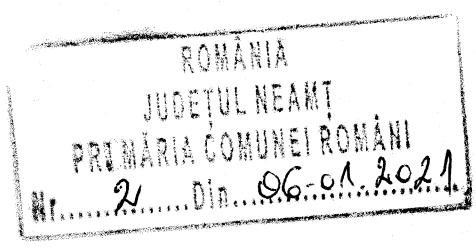 ROMÂNIA
JUDEŢUL NEAMŢ
PRIMĂRIA COMUNEI ROMÂNI
Nr. 2 Din 06-01.2021